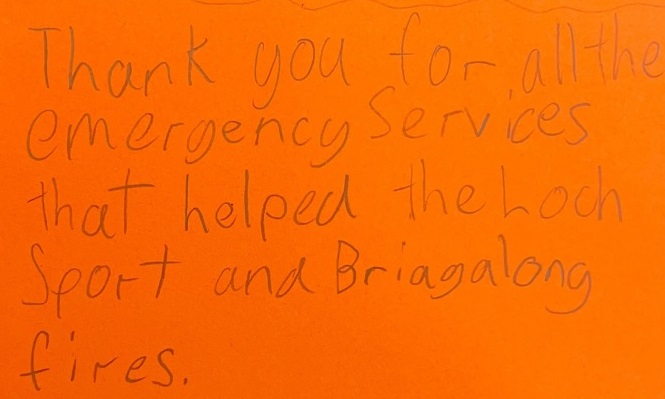 Thank you for all the
emergency Services
that helped the Loch
Sport and Briagalong
fires.